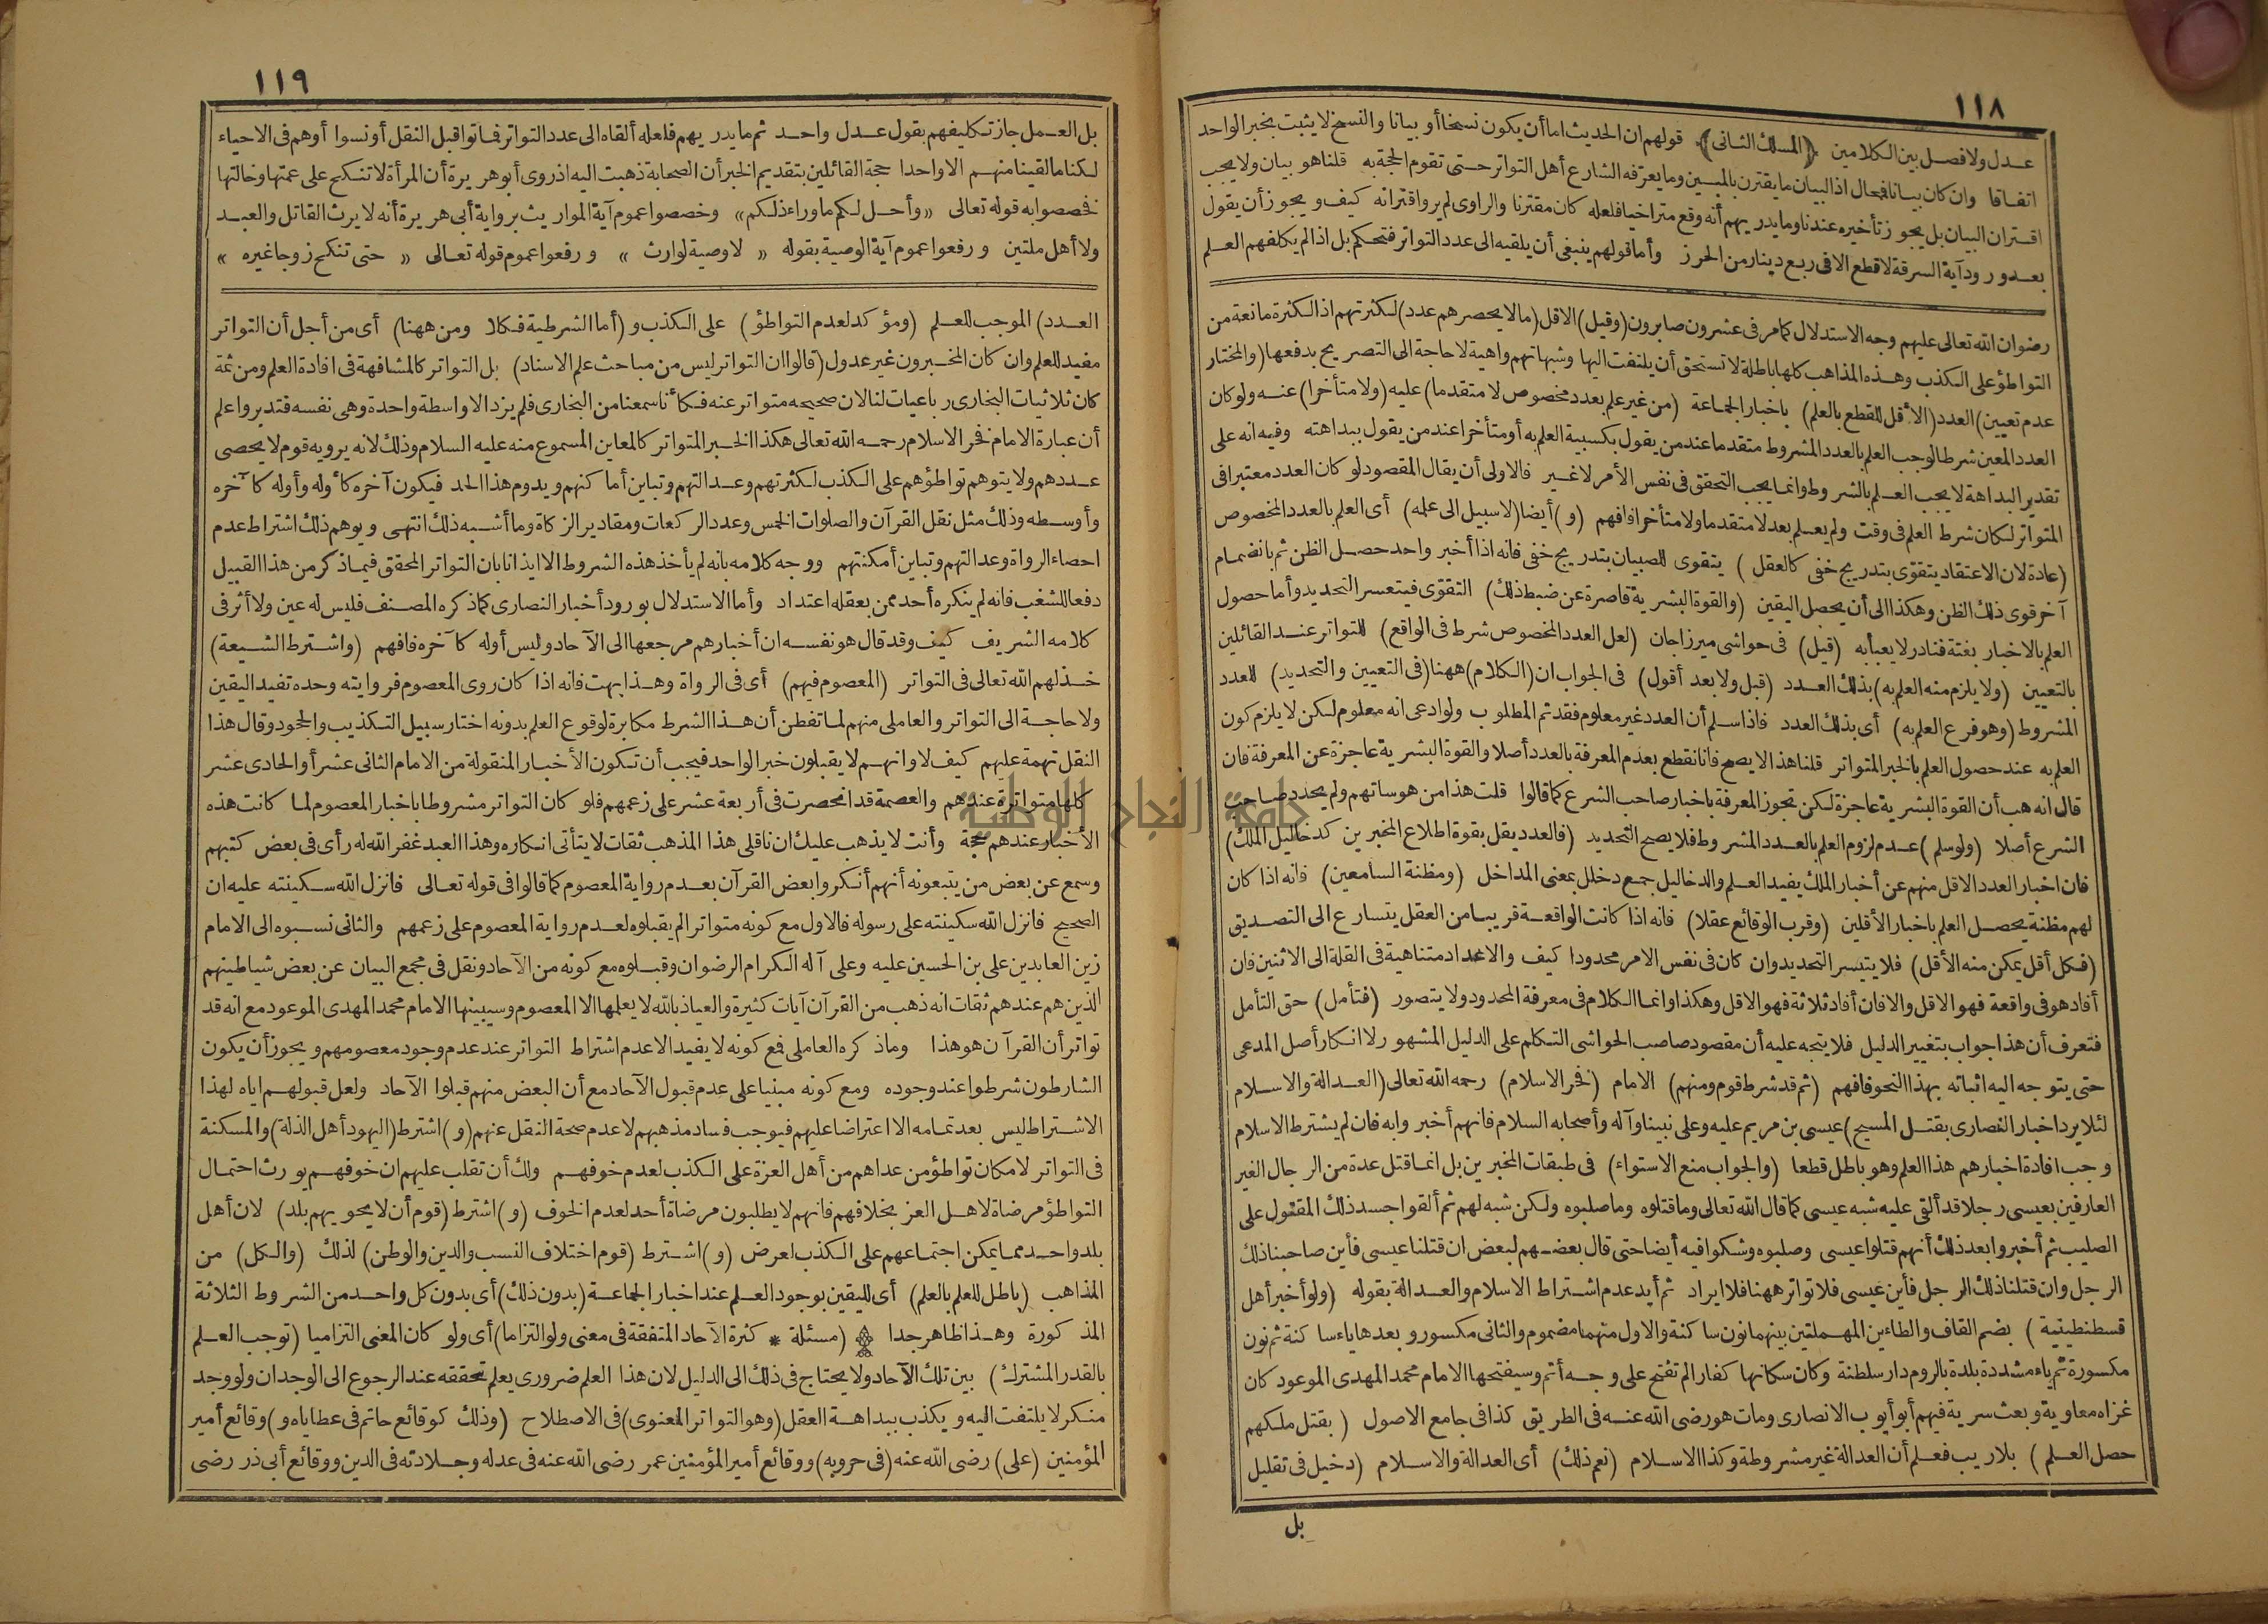 ١١٨
عدل ولا فصل بين الكلامين ﴿المسلك الثانى﴾ قولهم ان الحديث اما أن يكون نسخا أو بيانا والنسخ لا يثبت بخبر الواحد
اتفاقا وان كان بيانا فمحال اذ البيان ما يقترن بالمبين وما يعرّفه الشارع أهل التواتر حتى تقوم الحجة به قلنا هو بيان ولا يجب
اقتران البيان بل يجوز تأخيره عندنا وما يدريهم أنه وقع متراخيا فلعله كان مقترنا والراوى لم يرو اقترانه كيف ويجوز أن يقول
بعد ورود آية السرقة لا قطع الا فى ربع دينار من الحرز وأما قولهم ينبغى أن يلقيه الى عدد التواتر فتحكم بل اذا لم يكلفهم العلم
رضوان الله تعالى عليهم وجه الاستدلال كما مر فى عشرون صابرون (وقيل) الاقل (ما لا يحصرهم عدد) لكثرتهم اذ الكثرة مانعة من
التواطؤ على الكذب وهذه المذاهب كلها باطلة لا تستحق أن يلتفت اليها وشبهاتهم واهية لا حاجة الى التصريح بدفعها (والمختار
عدم تعيين) العدد (الاقل للقطع بالعلم) باخبار الجماعة (من غير علم بعدد مخصوص لا متقدما) عليه (ولا متأخرا) عنه ولو كان
العدد المعين شرطا لوجب العلم بالعدد المشروط متقدما عند من يقول بكسبية العلم به أو متأخرا عند من يقول ببداهته وفيه انه على
تقدير البداهة لا يجب العلم بالشروط وانما يجب التحقق فى نفس الأمر لا غير فالاولى أن يقال المقصود لو كان العدد معتبرا فى
المتواتر لكان شرط العلم فى وقت ولم يعلم بعد لا متقدما ولا متأخرا فافهم (و) أيضا (لا سبيل الى علمه) أى العلم بالعدد المخصوص
(عادة لان الاعتقاد يتقوّى بتدريج خفى كالعقل) يتقوى للصبيان بتدريج خفى فانه اذا أخبر واحد حصل الظن ثم بانضمام
آخر قوى ذلك الظن وهكذا الى أن يحصل اليقين (والقوة البشرية قاصرة عن ضبط ذلك) التقوى فيتعسر التحديد وأما حصول
العلم بالاخبار بغتة فنادر لا يعبأ به (قيل) فى حواشى ميرزاجان (لعل العدد المخصوص شرط فى الواقع) للتواتر عند القائلين
بالتعيين (ولا يلزم منه العلم به) بذلك العدد (قبل ولا بعد أقول) فى الجواب ان (الكلام) ههنا (فى التعيين والتحديد) للعدد
المشروط (وهو فرع العلم به) أى بذلك العدد فاذا سلم أن العدد غير معلوم فقد تم المطلوب ولو ادعى انه معلوم لكن لا يلزم كون
العلم به عند حصول العلم بالخبر المتواتر قلنا هذا لا يصح فانا نقطع بعدم المعرفة بالعدد أصلا والقوة البشرية عاجزة عن المعرفة فان
قال انه هب أن القوة البشرية عاجزة لكن تجوز المعرفة باخبار صاحب الشرع كما قالوا قلت هذا من هوساتهم ولم يحدد صاحب
الشرع أصلا (ولو سلم) عدم لزوم العلم بالعدد المشروط فلا يصح التحديد (فالعدد يقل بقوة اطلاع المخبرين كدخاليل الملك)
فان اخبار العدد الاقل منهم عن أخبار الملك يفيد العلم والدخاليل جمع دخلل بمعنى المداخل (ومظنة السامعين) فانه اذا كان
لهم مظنة يحصل العلم باخبار الأقلين (وقرب الوقائع عقلا) فانه اذا كانت الواقعة قريبا من العقل يتسارع الى التصديق
(فكل أقل يمكن منه الأقل) فلا يتيسر التحديد وان كان فى نفس الامر محدودا كيف والاعداد متناهية فى القلة الى الاثنين فان
أفاد هو فى واقعة فهو الاقل والا فان أفاد ثلاثة فهو الاقل وهكذا وانما الكلام فى معرفة المحدود ولا يتصور (فتأمل) حق التأمل
فتعرف أن هذا جواب بتغيير الدليل فلا يتجه عليه أن مقصود صاحب الحواشى التكلم على الدليل المشهور لا انكار أصل المدعى
حتى يتوجه اليه اثباته بهذا النحو فافهم (ثم قد شرط قوم ومنهم) الامام (فخر الاسلام) رحمه الله تعالى (العدالة والاسلام
لئلا يرد اخبار النصارى بقتل المسيح) عيسى بن مريم عليه وعلى نبينا وآله وأصحابه السلام فانهم أخبروا به فان لم يشترط الاسلام
وجب افادة اخبارهم هذا العلم وهو باطل قطعا (والجواب منع الاستواء) فى طبقات المخبرين بل انما قتل عدة من الرجال الغير
العارفين بعيسى رجلا قد ألقى عليه شبه عيسى كما قال الله تعالى وما قتلوه وما صلبوه ولكن شبه لهم ثم ألقوا جسد ذلك المقتول على
الصليب ثم أخبروا بعد ذلك أنهم قتلوا عيسى وصلبوه وشكوا فيه أيضا حتى قال بعضهم لبعض ان قتلنا عيسى فأين صاحبنا ذلك
الرجل وان قتلنا ذلك الرجل فأين عيسى فلا تواتر ههنا فلا ايراد ثم أيد عدم اشتراط الاسلام والعدالة بقوله (ولو أخبر أهل
قسطنطينية) بضم القاف والطاءين المهملتين بينهما نون ساكنة والاول منهما مضموم والثانى مكسور وبعدها ياء ساكنة ثم نون
مكسورة ثم ياء مشددة بلدة بالروم دار سلطنة وكان سكانها كفارا لم تفتح على وجه أتم وسيفتحها الامام محمد المهدى الموعود كان
غزاه معاوية وبعث سرية فيهم أبو أيوب الانصارى ومات هو رضى الله عنه فى الطريق كذا فى جامع الاصول (بقتل ملكهم
حصل العلم) بلا ريب فعلم أن العدالة غير مشروطة وكذا الاسلام (نعم ذلك) أى العدالة والاسلام (دخيل فى تقليل
بل
١١٩
بل العمل جاز تكليفهم بقول عدل واحد ثم ما يدريهم فلعله ألقاه الى عدد التواتر فماتوا قبل النقل أو نسوا أو هم فى الاحياء
لكنا ما لقينا منهم الا واحدا حجة القائلين بتقديم الخبر أن الصحابة ذهبت اليه اذ روى أبو هريرة أن المرأة لا تنكح على عمتها وخالتها
فخصصوا به قوله تعالى «وأحل لكم ما وراء ذلكم» وخصصوا عموم آية المواريث برواية أبى هريرة أنه لا يرث القاتل والعبد
ولا أهل ملتين ورفعوا عموم آية الوصية بقوله « لا وصية لوارث » ورفعوا عموم قوله تعالى « حتى تنكح زوجا غيره »
العدد) الموجب للعلم (ومؤكد لعدم التواطؤ) على الكذب و(أما الشرطية فكلا ومن ههنا) أى من أجل أن التواتر
مفيد للعلم وان كان المخبرون غير عدول (قالوا ان التواتر ليس من مباحث علم الاسناد) بل التواتر كالمشافهة فى افادة العلم ومن ثمة
كان ثلاثيات البخارى رباعيات لنا لان صحيحه متواتر عنه فكأنا سمعنا من البخارى فلم يزد الا واسطة واحدة وهى نفسه فتدبر واعلم
أن عبارة الامام فخر الاسلام رحمه الله تعالى هكذا الخبر المتواتر كالمعاين المسموع منه عليه السلام وذلك لانه يرويه قوم لا يحصى
عددهم ولا يتوهم تواطؤهم على الكذب لكثرتهم وعدالتهم وتباين أماكنهم ويدوم هذا الحد فيكون آخره كأوله وأوله كآخره
وأوسطه وذلك مثل نقل القرآن والصلوات الخمس وعدد الركعات ومقادير الزكاة وما أشبه ذلك انتهى ويوهم ذلك اشتراط عدم
احصاء الرواة وعدالتهم وتباين أمكنتهم ووجه كلامه بانه لم يأخذ هذه الشروط الا ايذانا بان التواتر المحقق فيما ذكر من هذا القبيل
دفعا للشغب فانه لم ينكره أحد ممن بعقله اعتداد وأما الاستدلال بورود أخبار النصارى كما ذكره المصنف فليس له عين ولا أثر فى
كلامه الشريف كيف وقد قال هو نفسه ان أخبارهم مرجعها الى الآحاد وليس أوله كآخره فافهم (واشترط الشيعة)
خذلهم الله تعالى فى التواتر (المعصوم فيهم) أى فى الرواة وهذا بهت فانه اذا كان روى المعصوم فروايته وحده تفيد اليقين
ولا حاجة الى التواتر والعاملى منهم لما تفطن أن هذا الشرط مكابرة لوقوع العلم بدونه اختار سبيل التكذيب والجحود وقال هذا
النقل تهمة عليهم كيف لا وانهم لا يقبلون خبر الواحد فيجب أن تكون الأخبار المنقولة من الامام الثانى عشر أو الحادى عشر
كلها متواترة عندهم والعصمة قد انحصرت فى أربعة عشر على زعمهم فلو كان التواتر مشروطا باخبار المعصوم لما كانت هذه
الأخبار عندهم حجة وأنت لا يذهب عليك ان ناقلى هذا المذهب ثقات لا يتأتى انكاره وهذا العبد غفر الله له رأى فى بعض كتبهم
وسمع عن بعض من يتبعونه أنهم أنكروا بعض القرآن بعدم رواية المعصوم كما قالوا فى قوله تعالى فانزل الله سكينته عليه ان
الصحيح فانزل الله سكينته على رسوله فالاول مع كونه متواترا لم يقبلوه لعدم رواية المعصوم على زعمهم والثانى نسبوه الى الامام
زين العابدين على بن الحسين عليه وعلى آله الكرام الرضوان وقبلوه مع كونه من الآحاد ونقل فى مجمع البيان عن بعض شياطينهم
الذين هم عندهم ثقات انه ذهب من القرآن آيات كثيرة والعياذ بالله لا يعلمها الا المعصوم وسيبينها الامام محمد المهدى الموعود مع انه قد
تواتر أن القرآن هو هذا وما ذكره العاملى فمع كونه لا يفيد الا عدم اشتراط التواتر عند عدم وجود معصومهم ويجوز أن يكون
الشارطون شرطوا عند وجوده ومع كونه مبنيا على عدم قبول الآحاد مع أن البعض منهم قبلوا الآحاد ولعل قبولهم اياه لهذا
الاشتراط ليس بعد تمامه الا اعتراضا عليهم فيوجب فساد مذهبهم لا عدم صحة النقل عنهم (و) اشترط (اليهود أهل الذلة) والمسكنة
فى التواتر لامكان تواطؤ من عداهم من أهل العزة على الكذب لعدم خوفهم ولك أن تقلب عليهم ان خوفهم يورث احتمال
التواطؤ مرضاة لاهل العز بخلافهم فانهم لا يطلبون مرضاة أحد لعدم الخوف (و) اشترط (قوم أن لا يحويهم بلد) لان أهل
بلد واحد مما يمكن اجتماعهم على الكذب لعرض (و) اشترط (قوم اختلاف النسب والدين والوطن) لذلك (والكل) من
المذاهب (باطل للعلم بالعلم) أى لليقين بوجود العلم عند اخبار الجماعة (بدون ذلك) أى بدون كل واحد من الشروط الثلاثة
المذكورة وهذا ظاهر جدا (مسئلة * كثرة الآحاد المتفقة فى معنى ولو التزاما) أى ولو كان المعنى التزاميا (توجب العلم
بالقدر المشترك) بين تلك الآحاد ولا يحتاج فى ذلك الى الدليل لان هذا العلم ضرورى يعلم تحققه عند الرجوع الى الوجدان ولو وجد
منكر لا يلتفت اليه ويكذب ببداهة العقل (وهو التواتر المعنوى) فى الاصطلاح (وذلك كوقائع حاتم فى عطاياه و) وقائع أمير
المؤمنين (على) رضى الله عنه (فى حروبه) ووقائع أمير المؤمنين عمر رضى الله عنه فى عدله وجلادته فى الدين ووقائع أبى ذر رضى
جامعة النجاح الوطنية